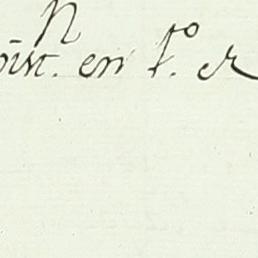 n
oist. en f.º er